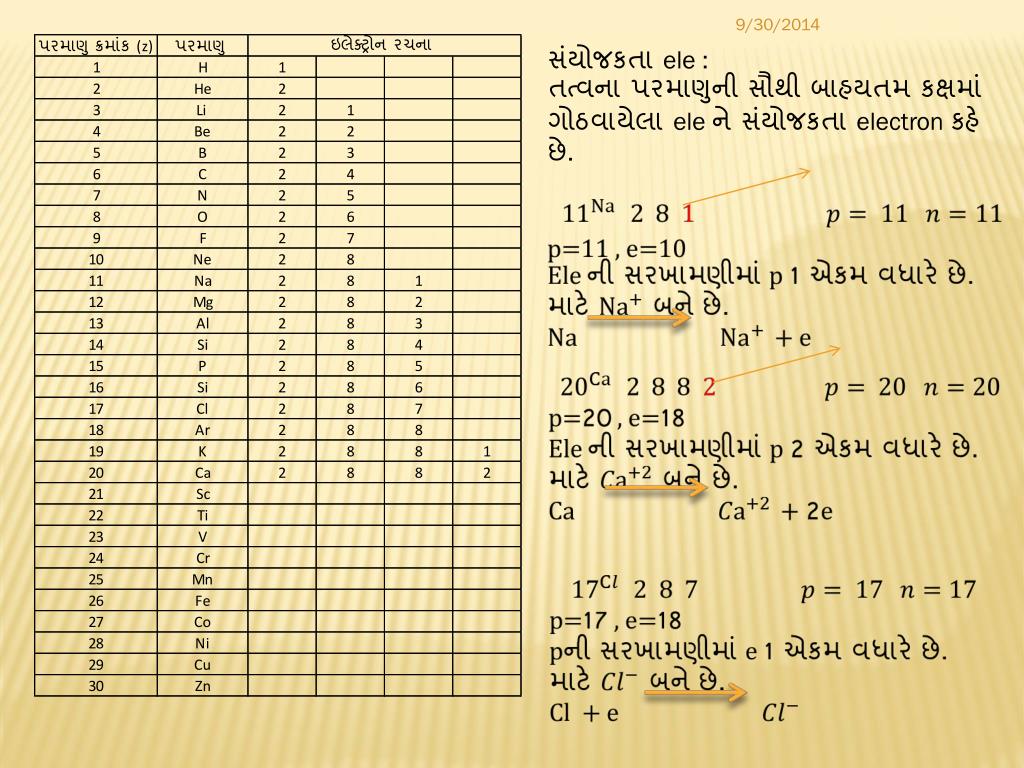 9/30/2014
પરમાણુ ક્રમાંક (z) પરમાણુ ઇલેક્ટ્રોન રચના
1 H 1
2 He 2
3 Li 2 1
4 Be 2 2
5 B 2 3
6 C 2 4
7 N 2 5
8 O 2 6
9 F 2 7
10 Ne 2 8
11 Na 2 8 1
12 Mg 2 8 2
13 Al 2 8 3
14 Si 2 8 4
15 P 2 8 5
16 Si 2 8 6
17 Cl 2 8 7
18 Ar 2 8 8
19 K 2 8 8 1
20 Ca 2 8 8 2
21 Sc
22 Ti
23 V
24 Cr
25 Mn
26 Fe
27 Co
28 Ni
29 Cu
30 Zn
સંયોજકતા ele :
તત્વના પરમાણુની સૌથી બાહ્યતમ કક્ષમાં
ગોઠવાયેલા ele ને સંયોજકતા electron કહે
છે.
11^Na 2 8 1 p = 11 n = 11
p=11 , e=10
Ele ની સરખામણીમાં p 1 એકમ વધારે છે.
માટે Na⁺ બને છે.
Na Na⁺ + e
20^Ca 2 8 8 2 p = 20 n = 20
p=20 , e=18
Ele ની સરખામણીમાં p 2 એકમ વધારે છે.
માટે Ca⁺² બને છે.
Ca Ca⁺² + 2e
17^Cl 2 8 7 p = 17 n = 17
p=17 , e=18
pની સરખામણીમાં e 1 એકમ વધારે છે.
માટે Cl⁻ બને છે.
Cl + e Cl⁻